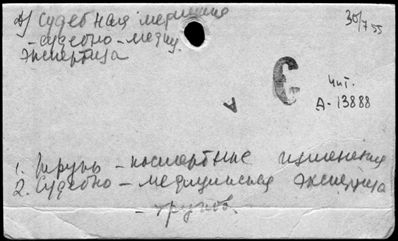 а) Судебная медицина
- судебно - медиц.
экспертиза
30/7 55
Є
чит.
А-13888
А
1. Трупы - посмертные изменения
2. Судебно - медицинская экспертиза
- трупов.